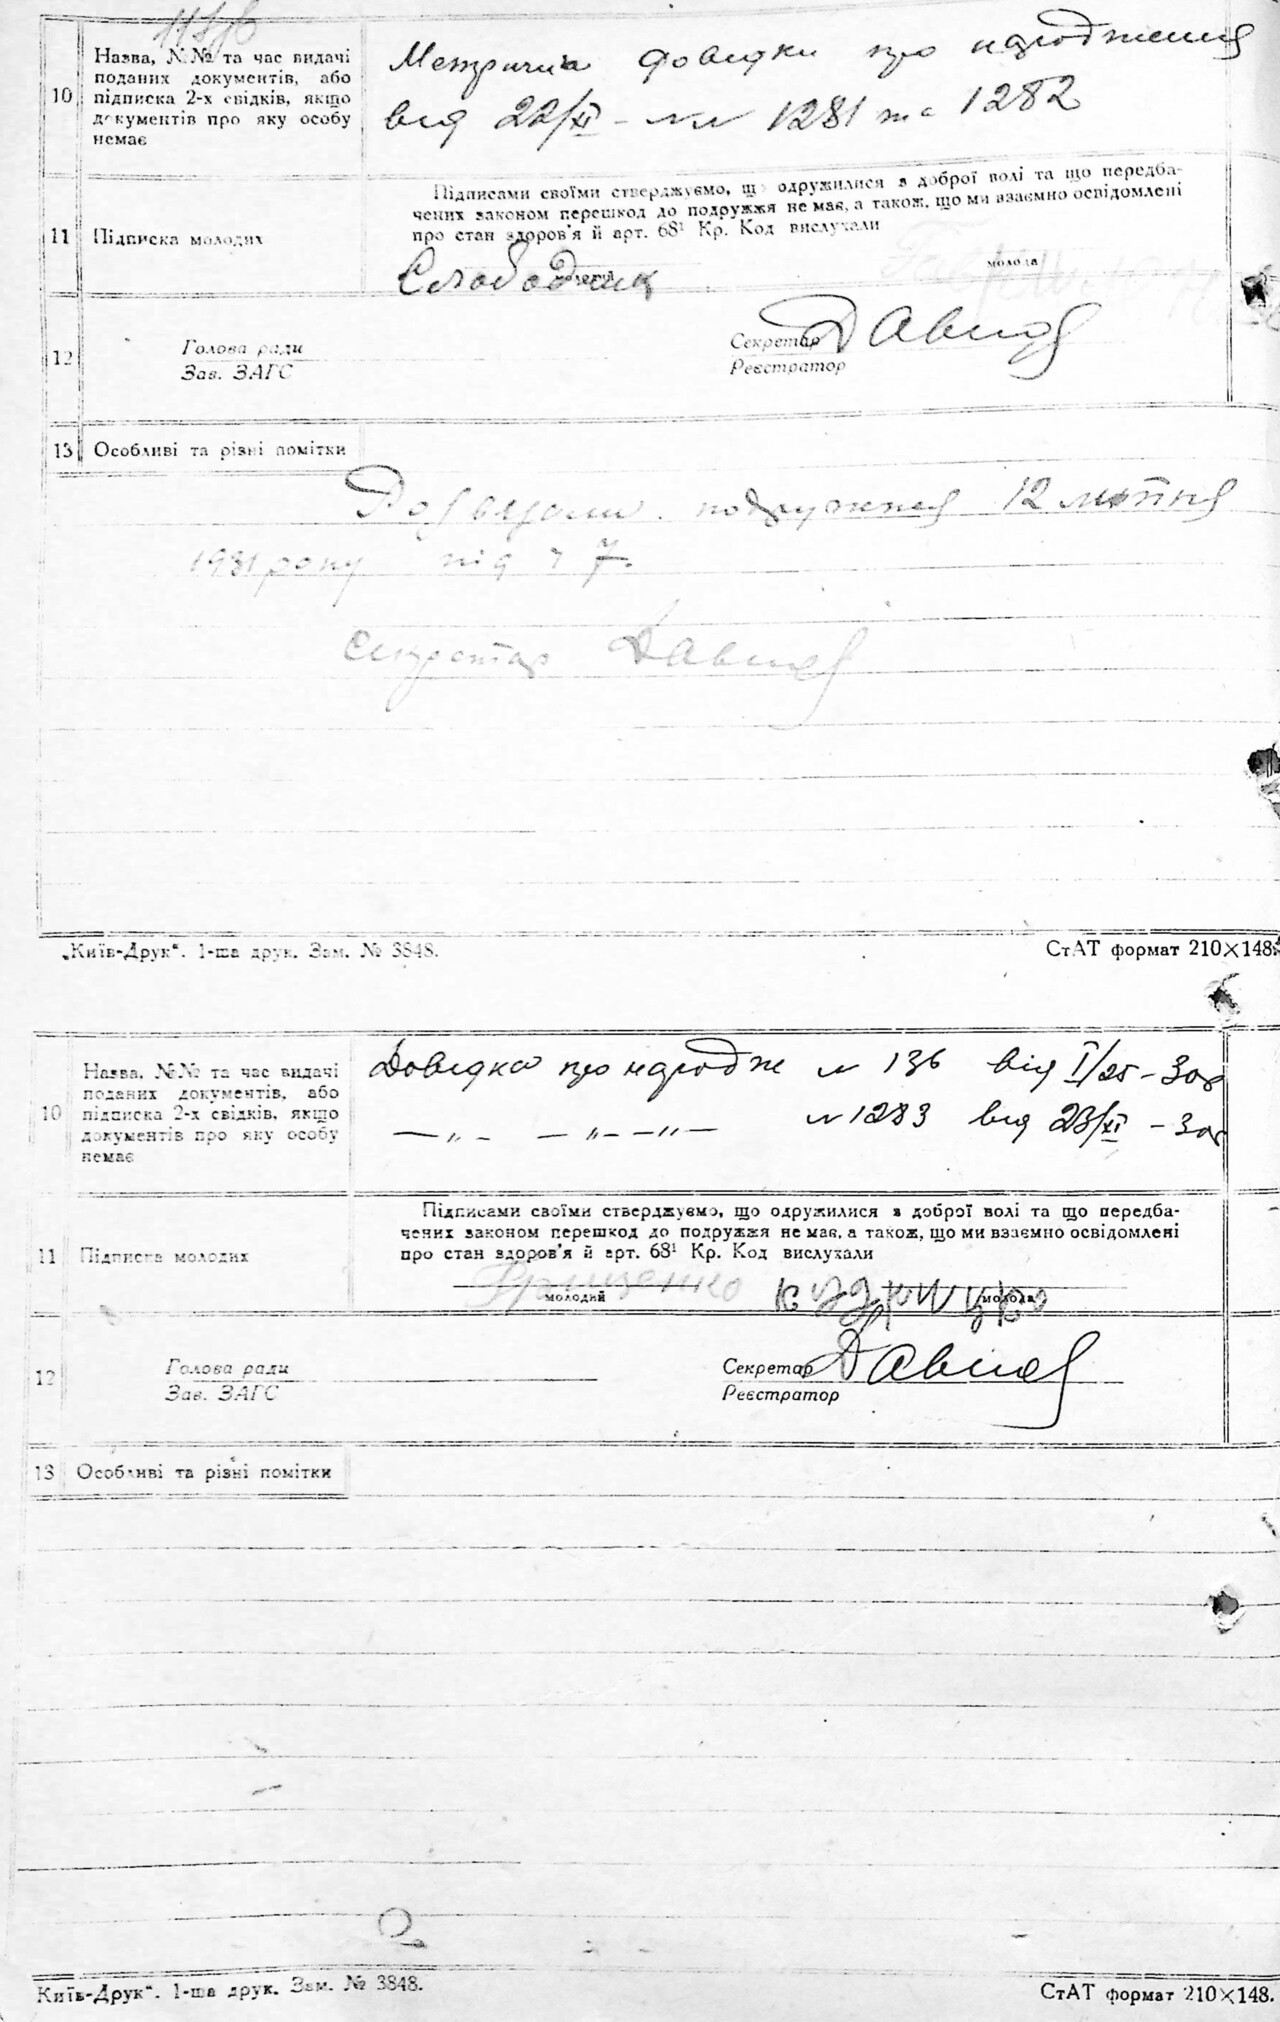 10
Назва, №№ та час видачі
поданих документів, або
підписка 2-х свідків, якщо
документів про яку особу
немає
Метрична довідки про народження
від 22/XI - NN 1281 та 1282
11
Підписка молодих
Підписами своїми стверджуємо, що одружилися з доброї волі та що передба-
чених законом перешкод до подружжя не має, а також, що ми взаємно освідомлені
про стан здоров'я й арт. 68¹ Кр. Код вислухали
Слободяник
молодий
молода
12
Голова ради
Зав. ЗАГС
Секретар
Реєстратор
13
Особливі та різні помітки
подружжя 12 лютня
1931 року під ч 7.
Секретар
„Київ-Друк“. 1-ша друк. Зам. № 3848.
СтАТ формат 210×148.
10
Назва, №№ та час видачі
поданих документів, або
підписка 2-х свідків, якщо
документів про яку особу
немає
Довідка про народж N 136 від I/25 - 30р
— „ — — „ — — „ — N 1283 від 23/XI - 30р
11
Підписка молодих
Підписами своїми стверджуємо, що одружилися з доброї волі та що передба-
чених законом перешкод до подружжя не має, а також, що ми взаємно освідомлені
про стан здоров'я й арт. 68¹ Кр. Код вислухали
молодий
молода
12
Голова ради
Зав. ЗАГС
Секретар
Реєстратор
13
Особливі та різні помітки
Київ-Друк“. 1-ша друк. Зам. № 3848.
СтАТ формат 210×148.